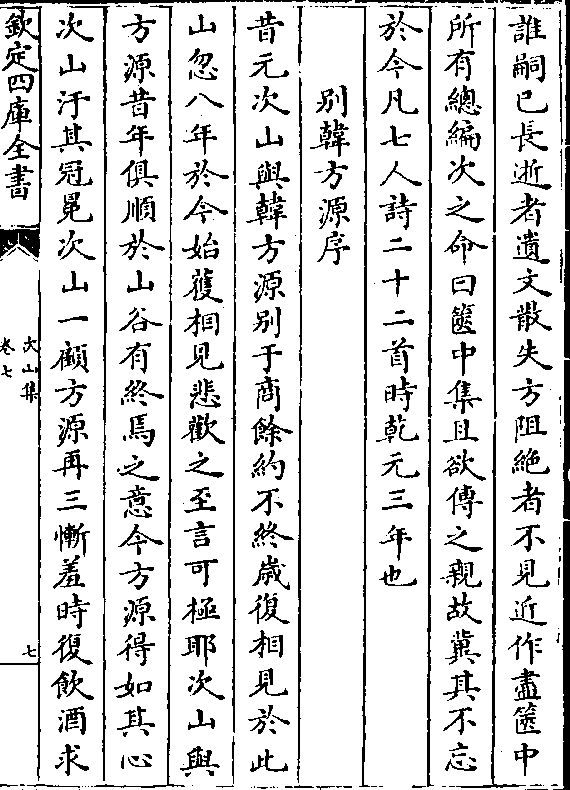 誰嗣已長逝者遺文散失方阻絶者不見近作盡篋中
所有總編次之命曰篋中集且欲傳之親故冀其不忘
於今凡七人詩二十二首時乾元三年也
别韓方源序
昔元次山與韓方源别于商餘約不終歲復相見於此
山忽八年於今始獲相見悲歡之至言可極耶次山與
方源昔年俱順於山谷有終焉之意今方源得如其心
次山汙其冠冕次山一顧方源再三慚羞時復飲酒求
欽定四庫全書
次山集
卷七
七